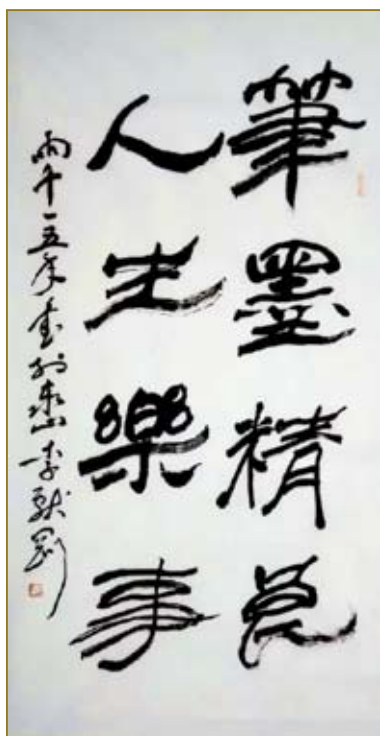 筆墨精良
人生樂事
两千一五年書於泰山李獻剛